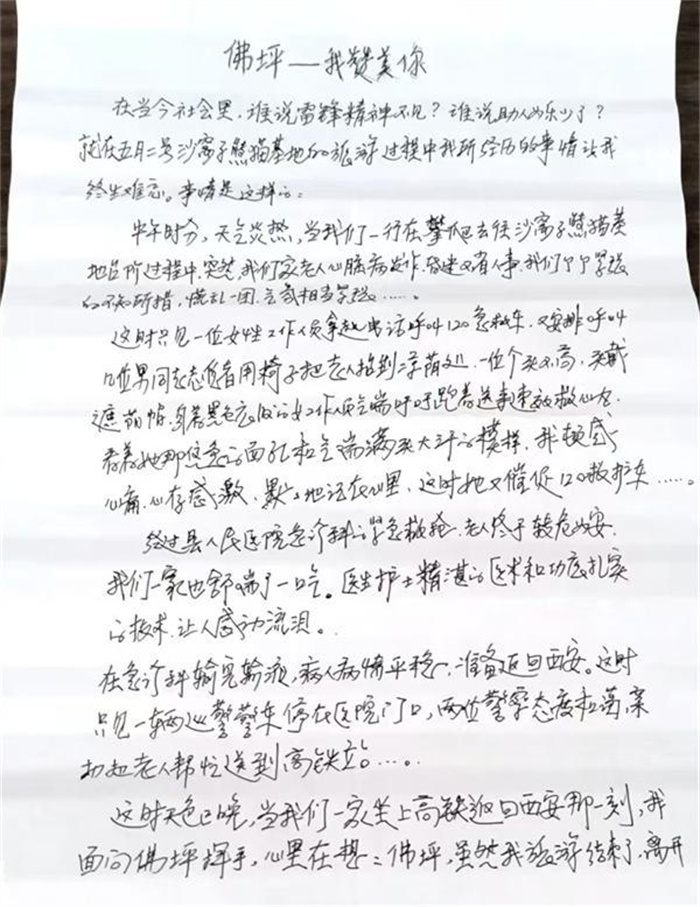 佛坪—我赞美你
在当今社会里，谁说雷锋精神不见？谁说助人为乐少了？
就在五月二号沙窝子熊猫基地的旅游过程中我所经历的事情让我
终生难忘。事情是这样的：
半午时分，天气炎热，当我们一行在攀爬去往沙窝子熊猫基
地路过程中，突然，我们家老人心脏病发作，昏迷不省人事，我们个个紧张
的不知所措，慌乱一团，气氛相当紧张……。
这时只见一位女性工作人员拿起电话呼叫120急救车，又安排呼叫
几位男同志志愿者用椅子把老人抬到凉荫处，一位个头不高，头戴
遮荫帽，身着黑色衣服的女工作人员气喘吁吁跑着送来速效救心丸，
看着她那焦急的面孔和气喘满头大汗的模样，我顿感
心痛，心存感激，默默地记在心里，这时她又催促120救护车……。
经过县人民医院急诊科的紧急救抢，老人终于转危为安，
我们一家也舒喘了一口气。医生护士精湛的医术和功底扎实
的技术，让人感动流泪。
在急诊科输完输液，病人病情平稳，准备返回西安。这时
只见一辆巡警警车停在医院门口，两位警察态度和蔼，亲
切把老人帮忙送到高铁站……。
这时天色已晚，当我们一家坐上高铁返回西安那一刻，我
面向佛坪挥手，心里在想：佛坪，虽然我旅游结束了，离开